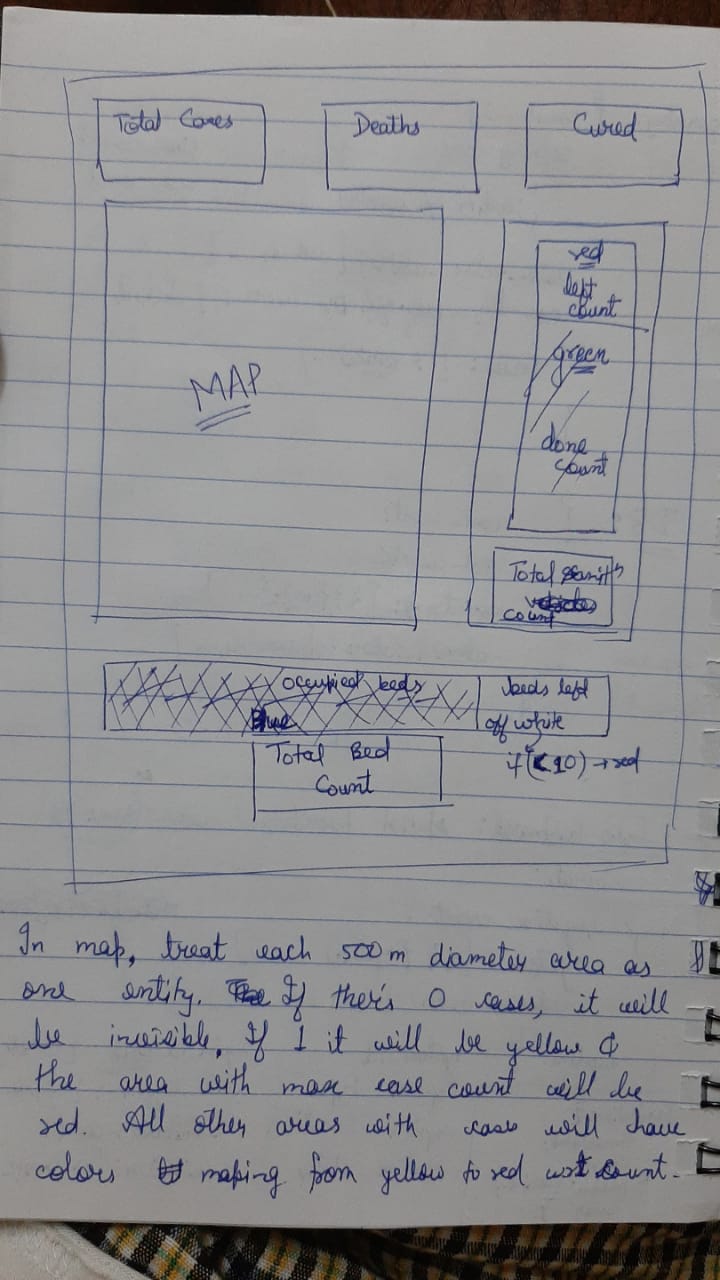 Total Cases
Deaths
Cured
red
left
count
green
done
count
MAP
Total
count
occupied beds
Blue
beds left
off white
if (<10) → red
Total Bed
Count
In map, treat each 500m diameter area as
one entity. If there's 0 cases, it will
be invisible. If 1 it will be yellow &
the area with max case count will be
red. All other areas with cases will have
colors maping from yellow to red wrt count.